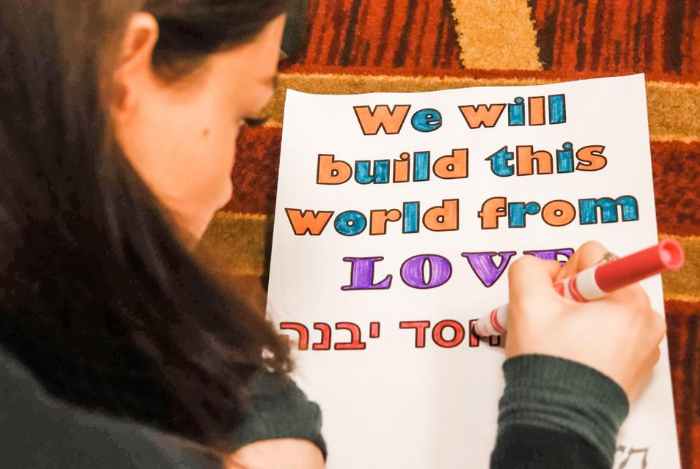 We will
build this
world from
LOVE
חסד יבנה